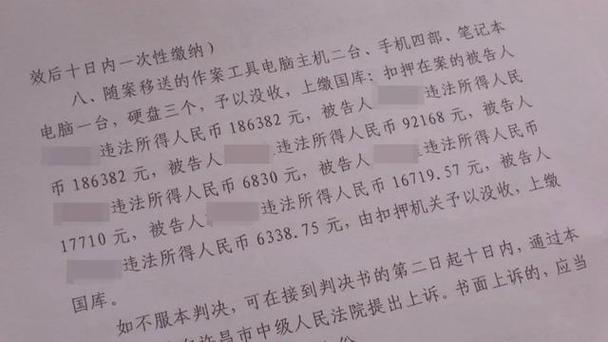 效后十日内一次性缴纳）
八、随案移送的作案工具电脑主机二台、手机四部、笔记本
电脑一台，硬盘三个，予以没收，上缴国库；扣押在案的被告人
违法所得人民币 186382 元，被告人 违法所得人民
币 186382 元，被告人 违法所得人民币 92168 元，被告人
违法所得人民币 6830 元，被告人 违法所得人民币
17710 元，被告人 违法所得人民币 16719.57 元，被告人
违法所得人民币 6338.75 元，由扣押机关予以没收，上缴
国库。
如不服本判决，可在接到判决书的第二日起十日内，通过本
许昌市中级人民法院提出上诉。书面上诉的，应当